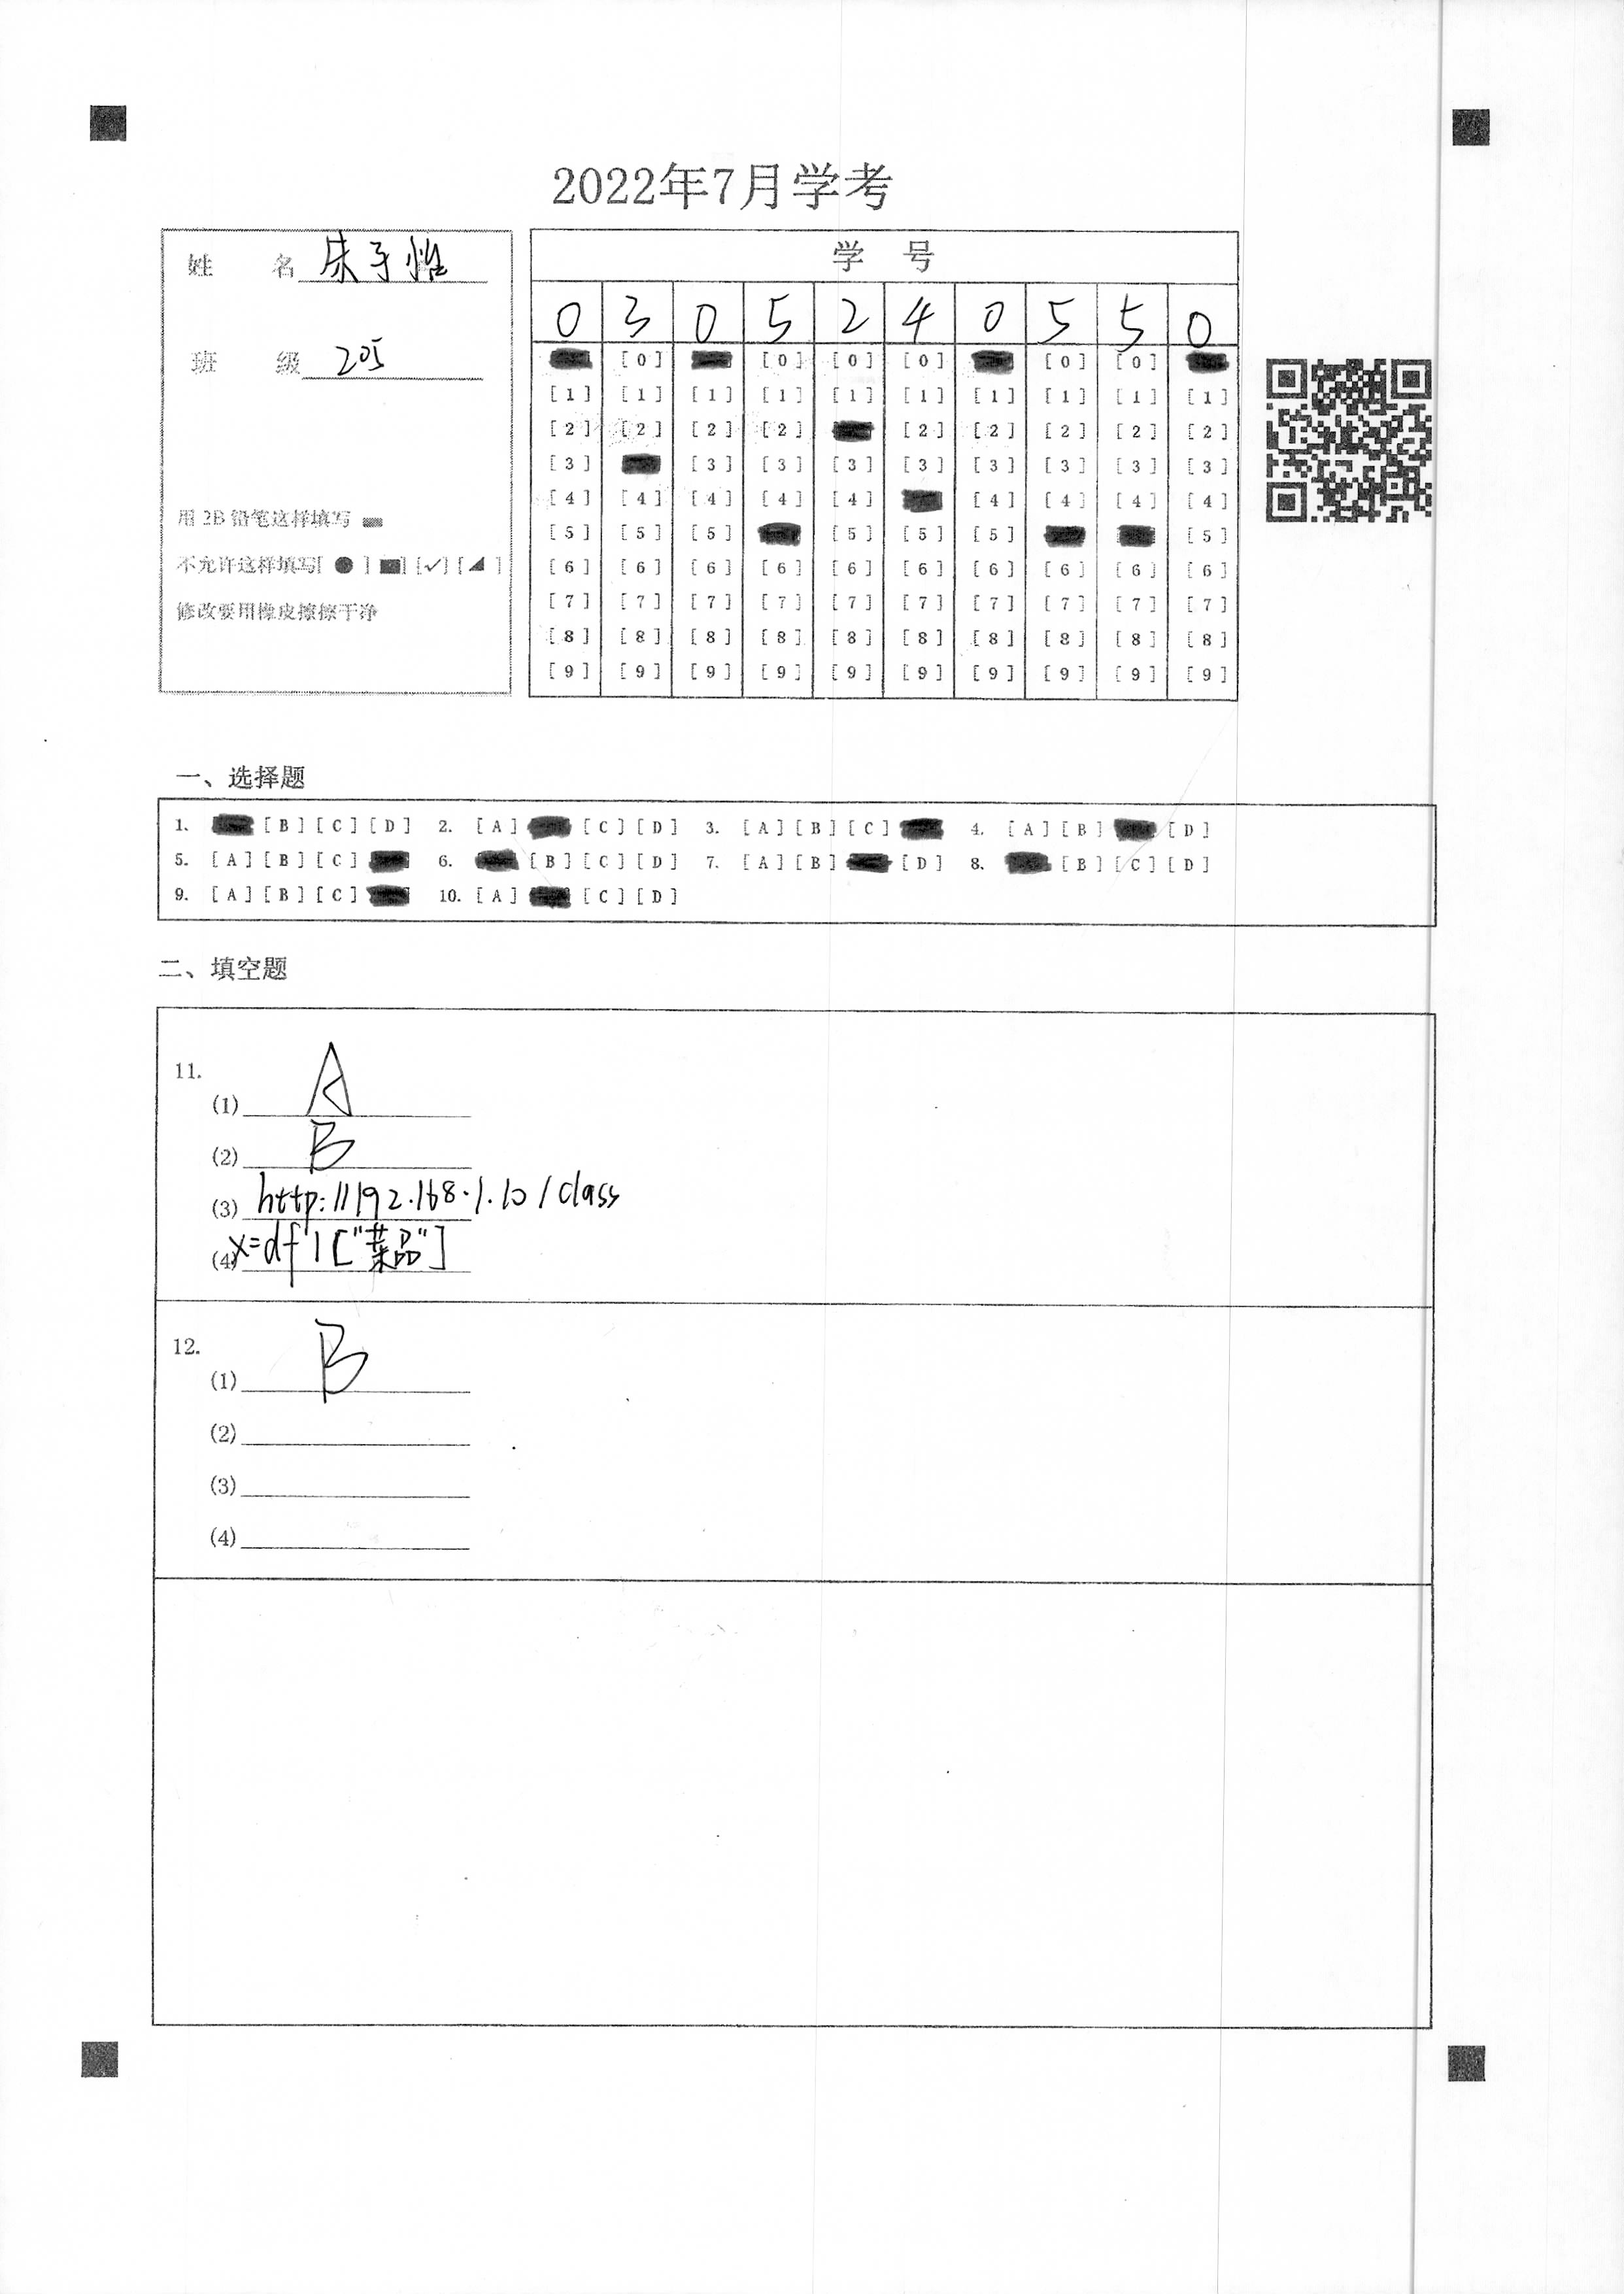 2022年7月学考
姓 名 朱子怡
班 级 205
用 2B 铅笔这样填写
不允许这样填写[ ● ] [■] [✓] [◢ ]
修改要用橡皮擦擦干净
学 号
0 3 0 5 2 4 0 5 5 0
[0] [0] [0] [0] [0] [0]
[1] [1] [1] [1] [1] [1] [1] [1] [1] [1]
[2] [2] [2] [2] [2] [2] [2] [2] [2]
[3] [3] [3] [3] [3] [3] [3] [3] [3]
[4] [4] [4] [4] [4] [4] [4] [4] [4]
[5] [5] [5] [5] [5] [5] [5]
[6] [6] [6] [6] [6] [6] [6] [6] [6] [6]
[7] [7] [7] [7] [7] [7] [7] [7] [7] [7]
[8] [8] [8] [8] [8] [8] [8] [8] [8] [8]
[9] [9] [9] [9] [9] [9] [9] [9] [9] [9]
一、选择题
1. [B] [C] [D] 2. [A] [C] [D] 3. [A] [B] [C] 4. [A] [B] [D]
5. [A] [B] [C] 6. [B] [C] [D] 7. [A] [B] [D] 8. [B] [C] [D]
9. [A] [B] [C] 10. [A] [C] [D]
二、填空题
11.
(1) A
(2) B
(3) http://192.168.1.10/class
(4) x=df1["菜品"]
12.
(1) B
(2)
(3)
(4)